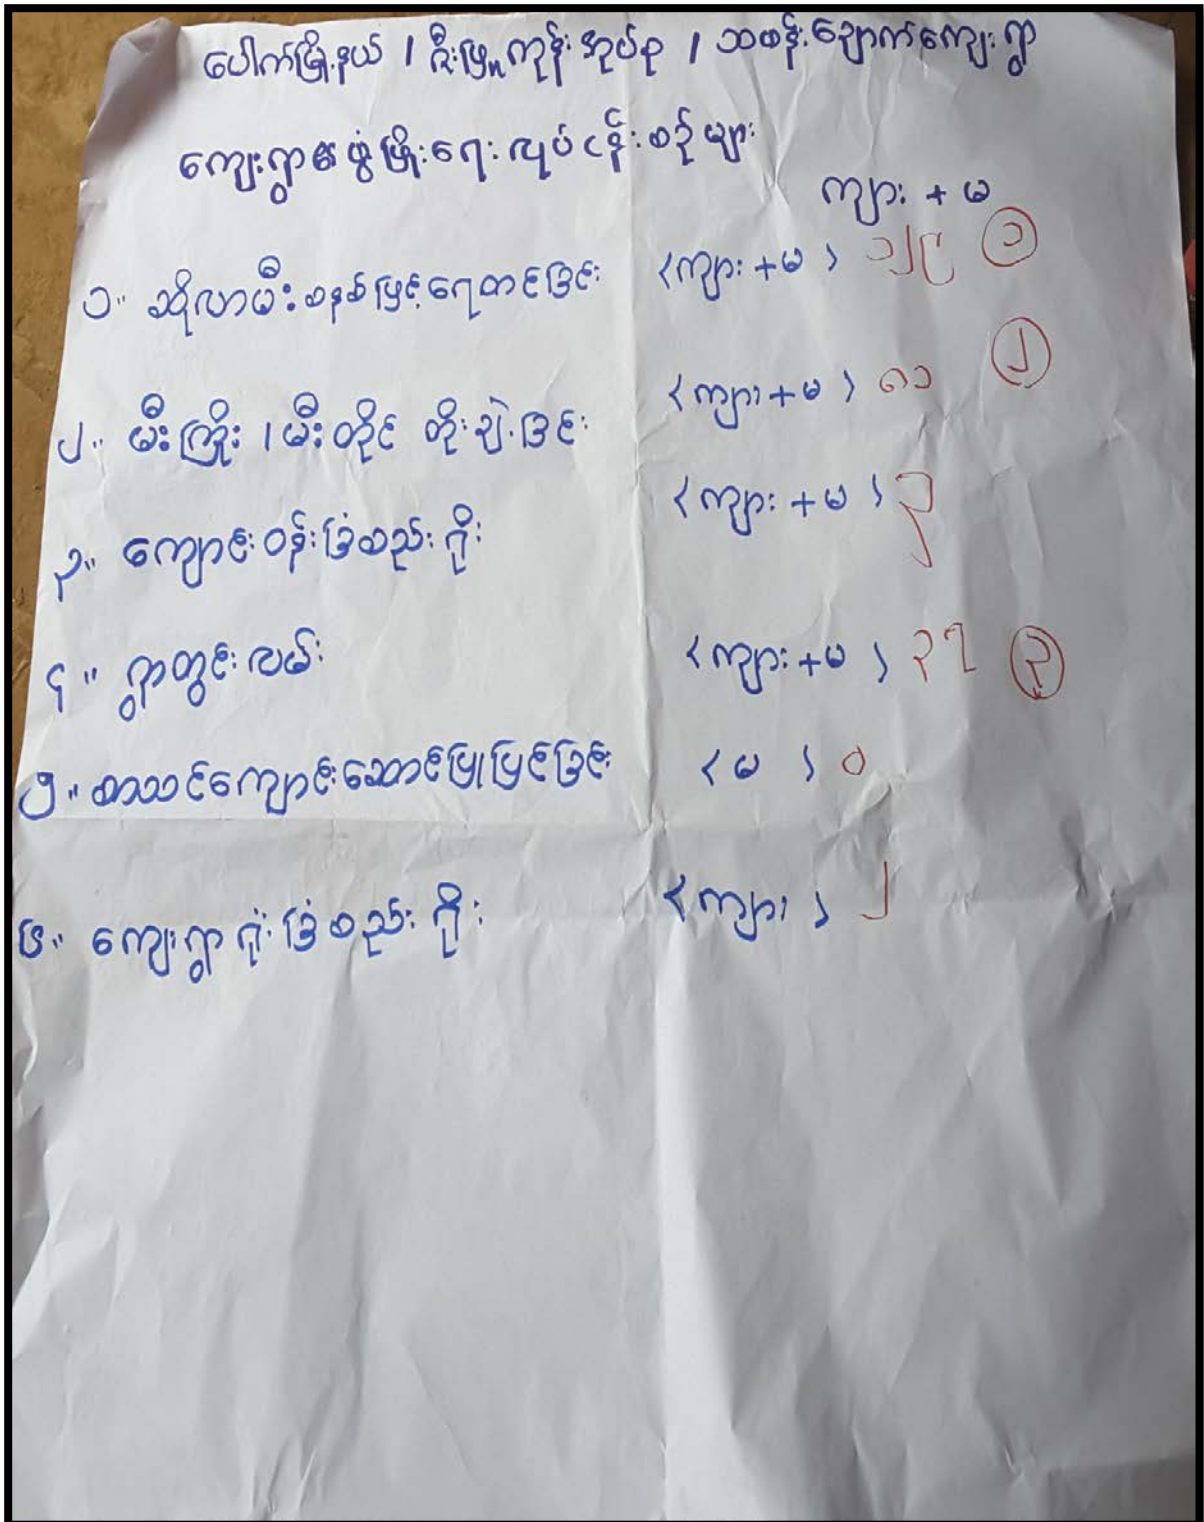 ပေါက်မြို့နယ် / ဇီးဖြူကုန်း အုပ်စု / သဖန်းချောက်ကျေးရွာ
ကျေးရွာဖွံ့ဖြိုးရေးလုပ်ငန်းစဉ်များ
ကျား + မ
၁။ ဆိုလာမီးစနစ်ဖြင့်ရေတင်ခြင်း (ကျား + မ) ၁၂၄ ①
၂။ မီးကြိုး / မီးတိုင် တိုးချဲ့ခြင်း (ကျား + မ) ၈၁ ②
၃။ ကျောင်းဝန်းခြံစည်းရိုး (ကျား + မ) ၃
၄။ ရွာတွင်းလမ်း (ကျား + မ) ၃၇ ③
၅။ စာသင်ကျောင်းဆောင်ပြုပြင်ခြင်း (မ) ၀
၆။ ကျေးရွာရုံးခြံစည်းရိုး (ကျား) ၂